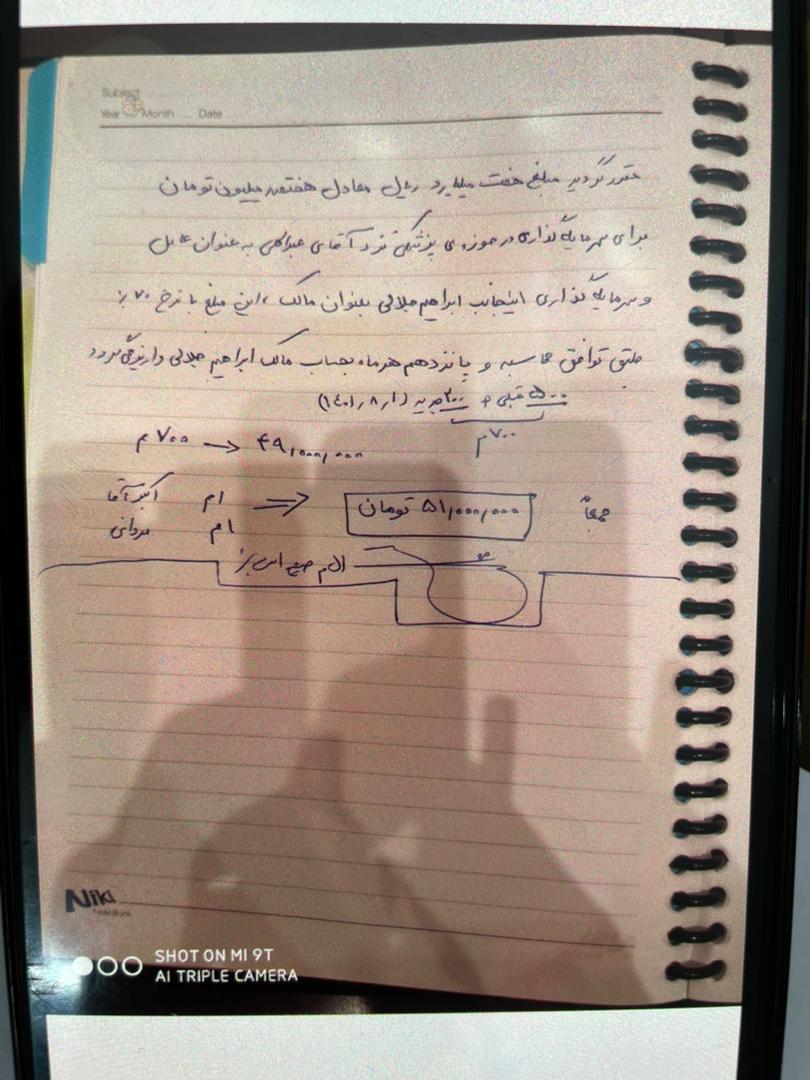 Subject
Year Month Date
مقرر گردید مبلغ هفت میلیارد ریال معادل هفتصد میلیون تومان
برای سرمایه گذاری در حوزه ی پزشکی نزد آقای به عنوان عامل
و سرمایه گذاری اینجانب ابراهیم جلالی بعنوان مالک ، این مبلغ با نرخ ٧٠٪
طبق توافق محاسبه و پانزدهم هر ماه بحساب مالک ابراهیم جلالی واریز می گردد
۵۰۰ قبلی و ۲۰۰ جدید (۱٤۰۱٫۸٫۱)
۷۰۰ م
۷۰۰ م → ۴۹,۰۰۰,۰۰۰
جمعاً ۵۱,۰۰۰,۰۰۰ تومان ⇐ ۱م اکبر آقا
۱م مردانی
Niki
Note Book
SHOT ON MI 9T
AI TRIPLE CAMERA